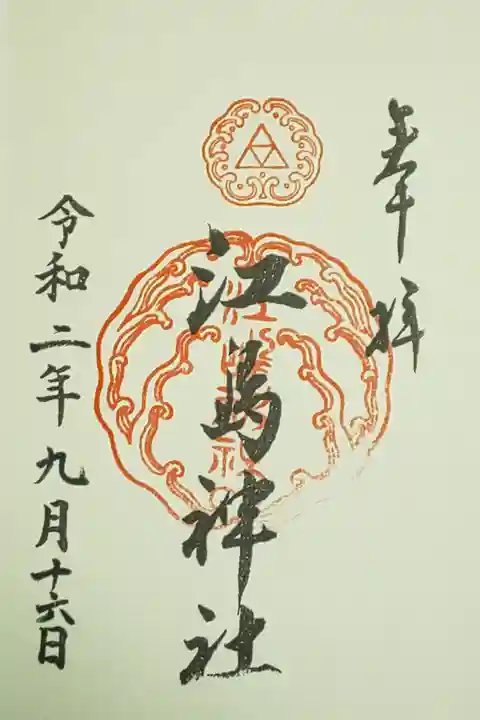 奉拝
江島神社
令和二年九月十六日